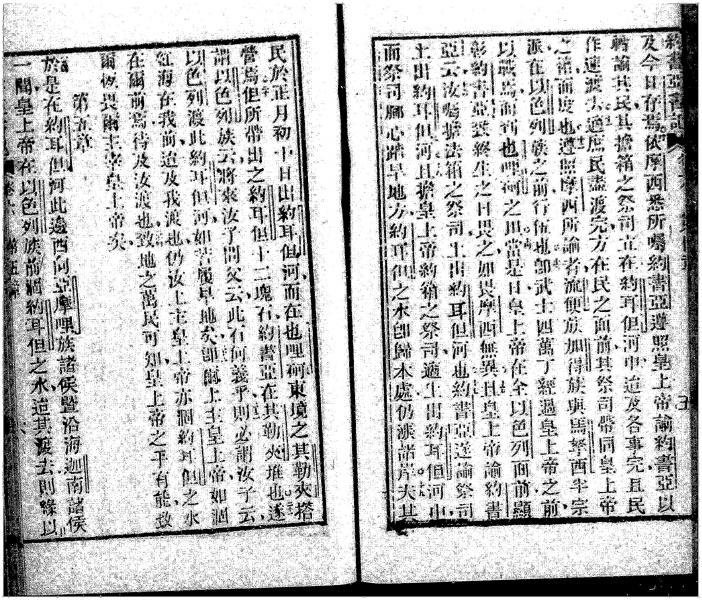 約書亞書記
及今日存焉依摩西悉所囑約書亞遵照皇上帝諭約書亞以
轉諭其民其擔箱之祭司立在約耳但河中迨及各事完且民
作速渡去過庶民盡渡完方在民之面前其祭司帶同皇上帝
之箱而度也遵照摩西所諭者流便族加得族與馬拏西半宗
派在以色列族之前行伍也卽武士四萬丁經過皇上帝之前
以戰焉而到也哩何之田當是日皇上帝在全以色列面前顯
彰約書亞終生之日畏之如畏摩西無異且皇上帝諭約書
亞云汝囑擔法箱之祭司上出約耳但河也約書亞遂諭祭司
上出約耳但河且擔皇上帝約箱之祭司適上出約耳但河中
而祭司脚心踏旱地方約耳但之水卽歸本處仍漲諸岸夫其
民於正月初十日出約耳但河而在也哩何東境之其勒夾搭
營焉但所帶出之約耳但十二塊石約書亞在其勒夾堆也遂
謂以色列族云將來汝子問父云此石何義乎則必謂汝子云
以色列渡此約耳但河如履旱地矣卽爾上主皇上帝如涸
紅海在我前迨及我渡也仍汝上主皇上帝亦涸約耳但之水
在爾前焉待及汝渡也致地之萬民可知皇上帝之手有能致
爾恆畏爾主宰皇上帝矣
第五章
於是在約耳但河此邊西向亞摩哩族諸侯暨沿海迦南諸侯
一聞皇上帝在以色列族前涸約耳但之水迨其渡去則緣以